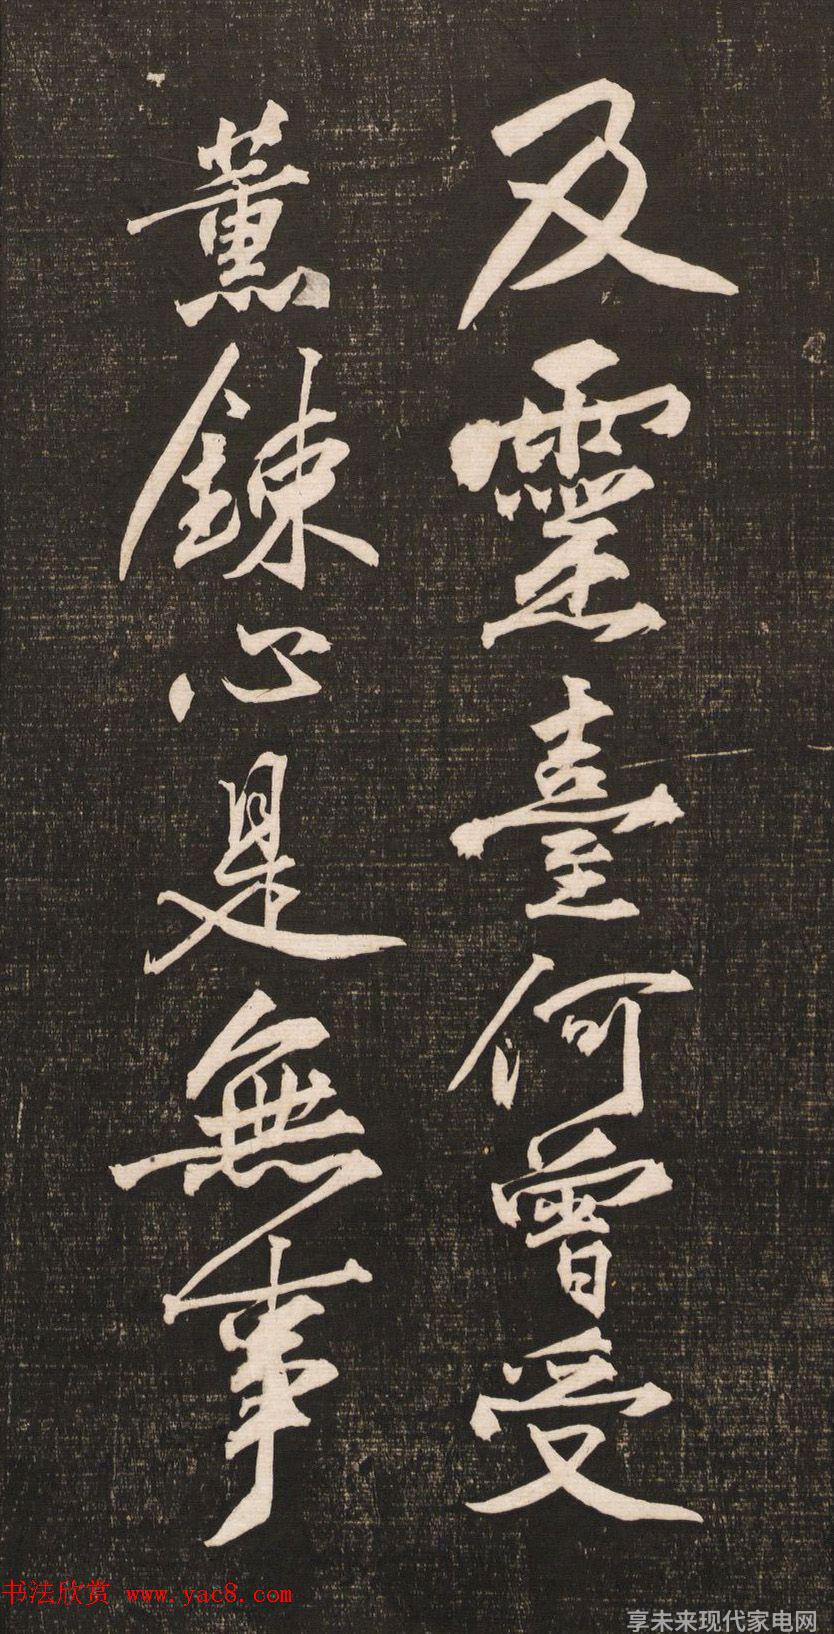 及靈臺何曾受
薰鍊心是無事
书法欣赏 www.yac8.com
享未来现代家电网